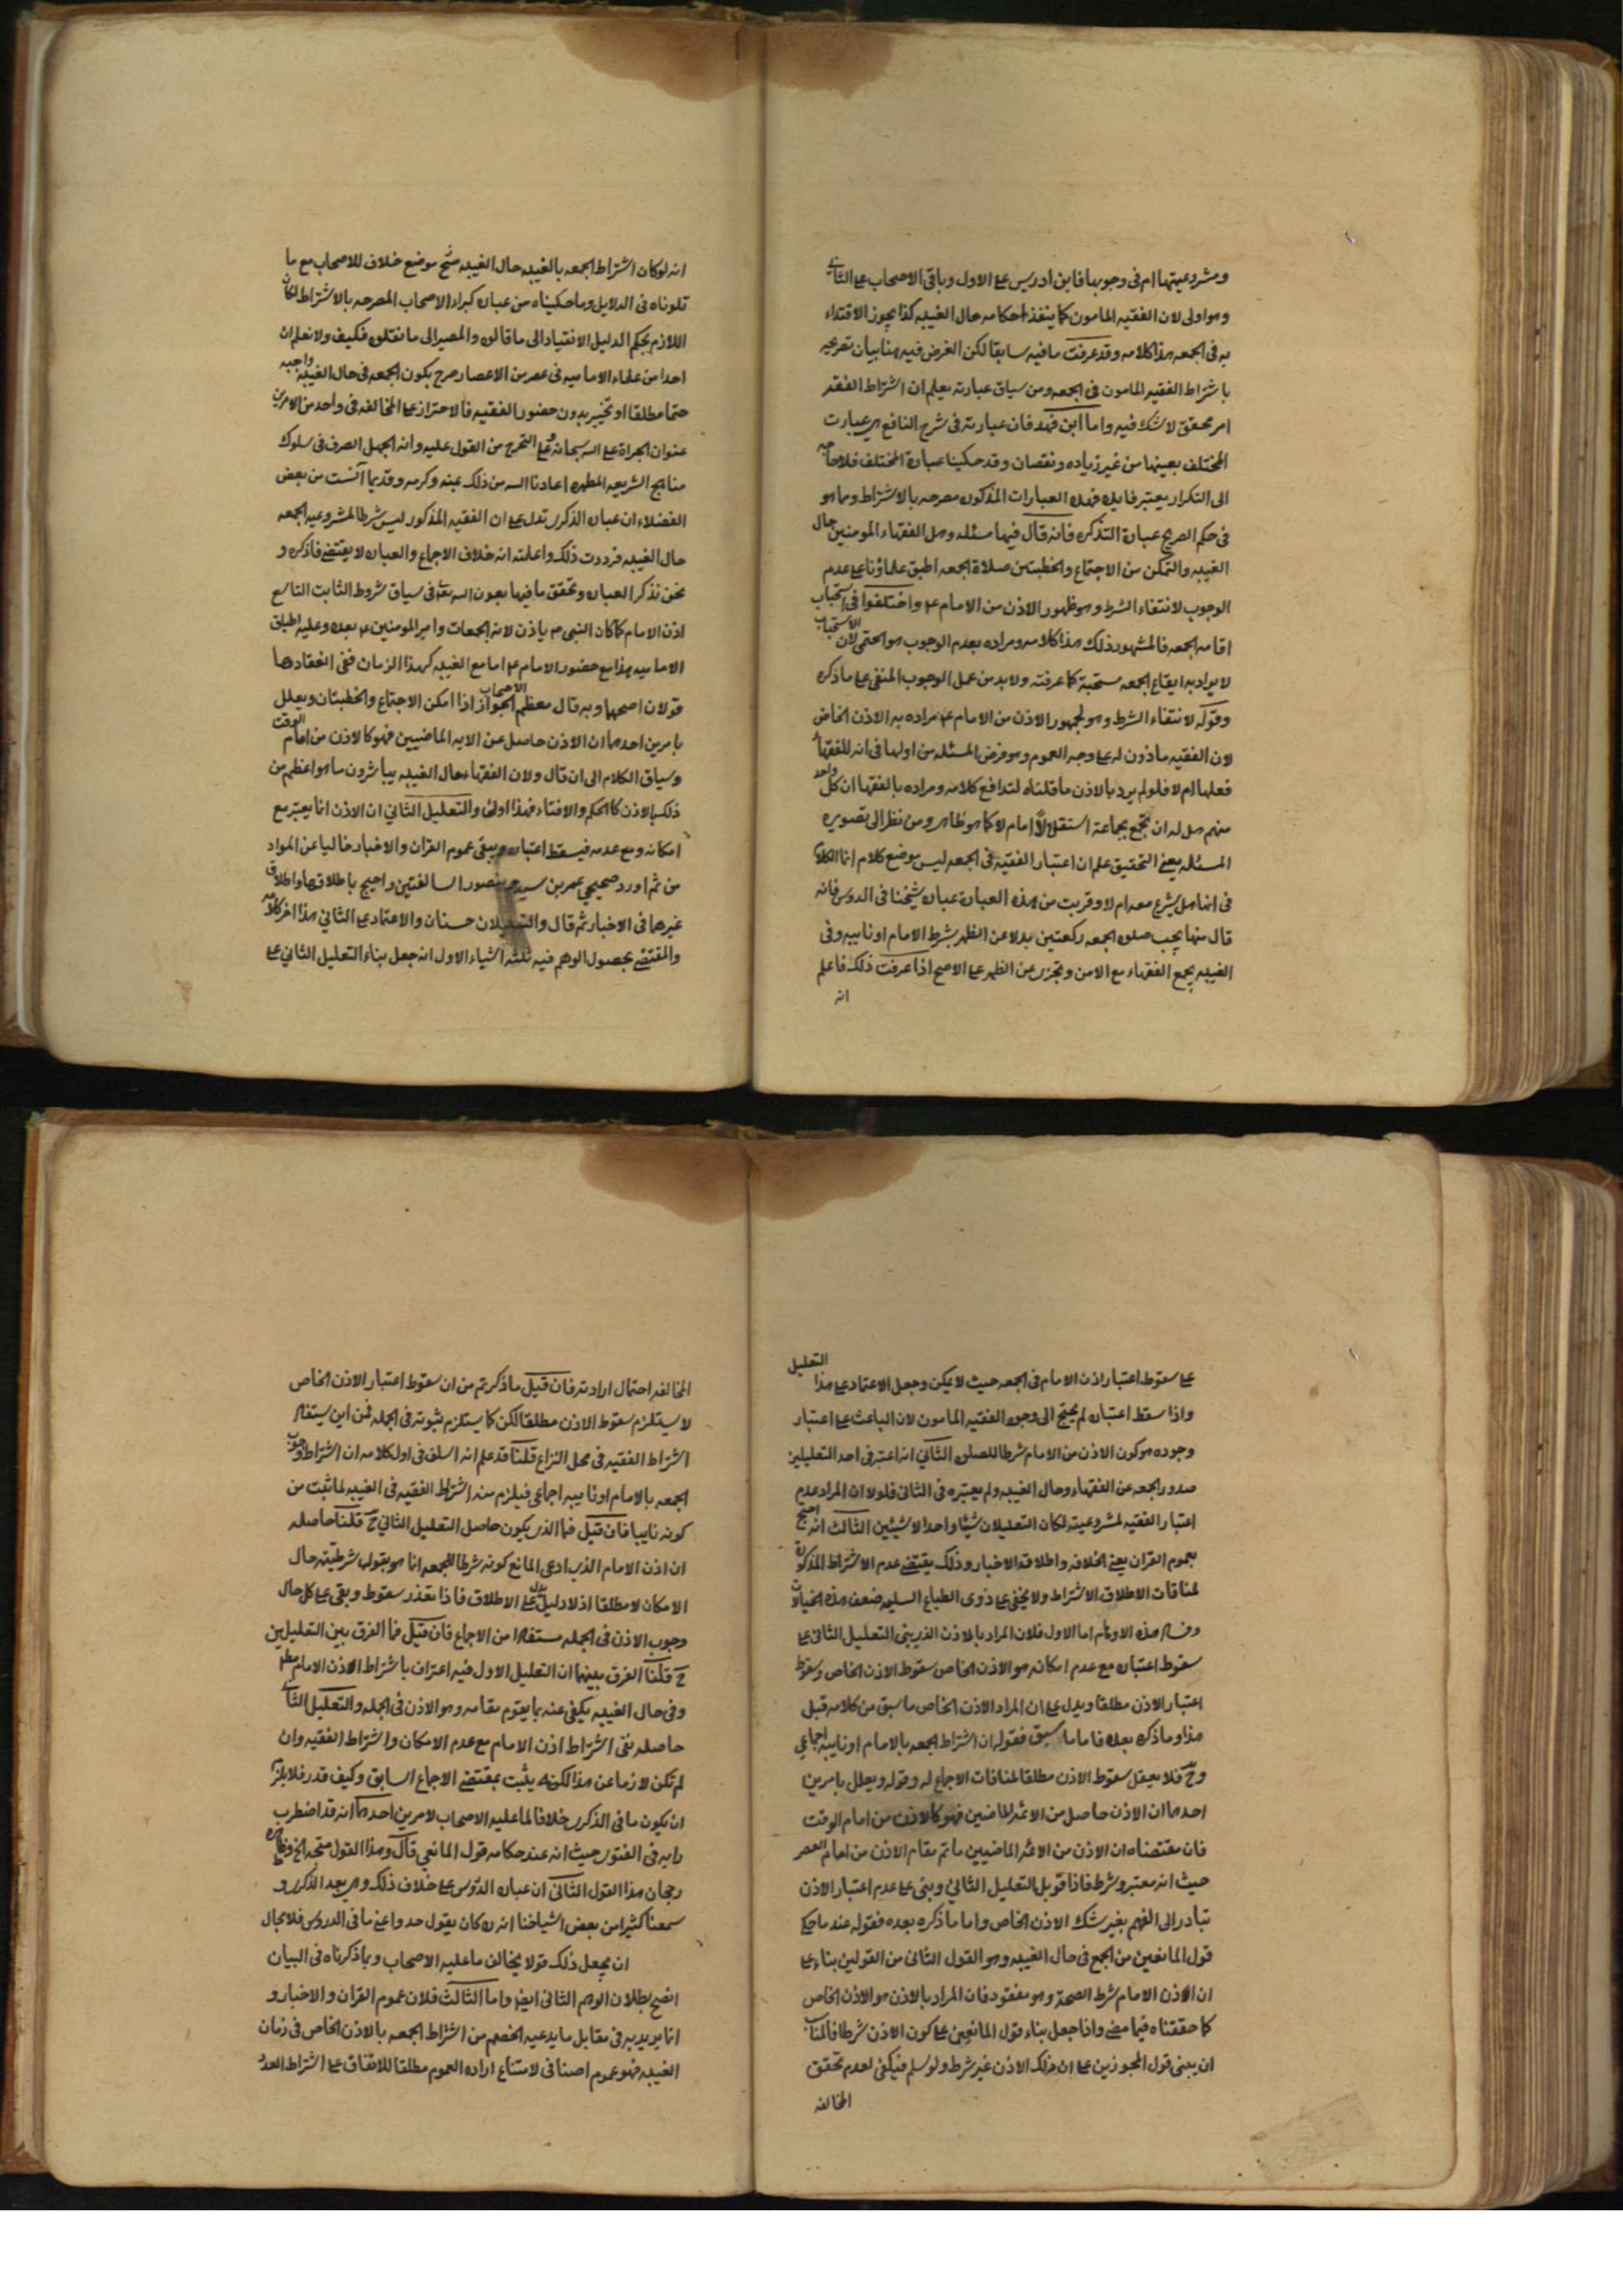 ومشروعيتها ام فى وجوبها فابن ادريس على الاول وباقى الاصحاب على الثانى
وهو اولى لان الفقيه المامون كما ينفذ احكامه حال الغيبه كذا يجوز الاقتداء
به فى الجمعه هذا كلامه وقد عرفت مافيه سابقا لكن الغرض فيه هنا بيان تصريحه
باشتراط الفقيه المامون فى الجمعه ومن سياق عبارته يعلم ان اشتراط الفقه
امر محقق لا شك فيه واما ابن فهد فان عبارته فى شرح النافع هى عبارت
المختلف بعينها من غير زياده ونقصان وقد حكينا عبارة المختلف فلا حاجه
الى التكرار يعتبر فايده فهذه العبارات المذكوره مصرحه بالاشتراط ومما هو
فى حكم الصريح عبارة التذكره فانه قال فيها مسئله وهل الفقهاء المومنين حال
الغيبه والتمكن من الاجتماع والخطبتين صلاة الجمعه اطبق علماؤنا على عدم
الوجوب لانتفاء الشرط وهو ظهور الاذن من الامام ع واختلفوا فى استحباب
اقامه الجمعه فالمشهور ذلك هذا كلامه ومراده بعدم الوجوب هو الحتمى لان الاستحباب
لا يراد به ايقاع الجمعه مستحبة كما عرفته ولا بد من عمل الوجوب المنفى على ما ذكره
وقوله لانتفاء الشرط وهو لجمهور الاذن من الامام ع مراده به الاذن الخاص
لان الفقيه ماذون له على وجه العموم وهو فرض المسئله من اولها فى انه للفقهاء
فعلها ام لا فلو لم يرد بالاذن ما قلناه لتدافع كلامه ومراده بالفقها ان كل واحد
منهم هل له ان يجمع بجماعة استقلالاً امام لا كما هو ظاهر ومن نظر الى تصويره
المسئله يعنى التحقيق علم ان اعتبار الفقيه فى الجمعه ليس موضع كلام انما الكلام
فى انها هل يشرع معه ام لا وقريب من هذه العبارة عبارة شيخنا فى الدروس فانه
قال منها يجب صلوة الجمعه ركعتين بدلا عن الظهر بشرط الامام او نايبه وفى
الغيبه يجمع الفقهاء مع الامن وتجزى عن الظهر على الاصح اذا عرفت ذلك فاعلم
انه
انه لو كان اشتراط الجمعه بالغيبه حال الغيبه متح موضع خلاف للاصحاب مع ما
تلوناه فى الدلايل وما حكيناه من عبارة كبراء الاصحاب المصرحه بالاشتراط لكان
اللازم بحكم الدليل الانقياد الى ما قالوه والمصير الى ما نقلوه فكيف ولا نعلم ان
احدا من علماء الاماميه فى عصر من الاعصار صرح بكون الجمعه فى حال الغيبه واجبه
حتما مطلقا او تخيير بدون حضور الفقيه فالاحتراز على المخالفه فى واحد من الامرين
عنوان الجراة على الله سبحانه وعلى التحرج من القول عليه وانه الجهل الصرف فى سلوك
مناهج الشريعه المطهره اعاذنا الله من ذلك بمنه وكرمه وقديما آنست من بعض
الفضلاء ان عبارة الذكرى تدل على ان الفقيه المذكور ليس شرطا لمشروعيه الجمعه
حال الغيبه فرددت ذلك واعلمته انه خلاف الاجماع والعباره لا يقتضى فاذكره و
نحن نذكر العباره ونحقق ما فيها بعون الله تعالى فى سياق شروط الثابت التاسع
اذن الامام كما كان النبى ص ياذن لائمة الجمعات وامير المومنين ع بعده وعليه اطباق
الاماميه هذا مع حضور الامام ع اما مع الغيبه كهذا الزمان ففى انعقادها
قولان اصحهما وبه قال معظم الاصحاب الجواز اذا امكن الاجتماع والخطبتان ويعلل
بامرين احدهما ان الاذن حاصل عن الايه الماضيين فهو كالاذن من امام الوقت
وسياق الكلام الى ان قال ولان الفقهاء حال الغيبه يباشرون ما هو اعظم من
ذلك بالاذن كالحكم والافتاء فهذا اولى والتعليل الثانى ان الاذن انما يعتبر مع
امكانه ومع عدمه فيسقط اعتباره ويبقى عموم القران والاخبار خاليا عن المواد
من ثم اورد صحيحى عمر بن ومنصور السالفتين واحتج باطلاقهما واطلاق
غيرها فى الاخبار ثم قال والتعليلان حسنان والاعتماد على الثانى هذا اخر كلامه
والمقتضى بحصول الوهم فيه ثلثه اشياء الاول انه جعل بناء التعليل الثانى على
على سقوط اعتبار اذن الامام فى الجمعه حيث لا يمكن وجعل الاعتماد على هذا التعليل
واذا سقط اعتباره لم يحتج الى وجود الفقيه المامون لان الباعث على اعتبار
وجوده هو كون الاذن من الامام شرطا للصلوه الثانى انه اعتبر فى احد التعليلين
صدور الجمعه عن الفقهاء وحال الغيبه ولم يعتبره فى الثانى فلولا ان المراد عدم
اعتبار الفقيه لمشروعيته لكان التعليلان شيئا واحدا لا شيئين الثالث انه احتج
بعموم القران يعنى الخلافه واطلاقه الاخبار وذلك يقتضى عدم الاشتراط المذكور
لمنافات الاطلاق الاشتراط ولا يخفى على ذوى الطباع السليمه ضعف هذه الخيالات
هذه الاوهام اما الاول فلان المراد بالاذن الذى بنى التعليل الثانى على
سقوط اعتباره مع عدم امكانه هو الاذن الخاص سقوط الاذن الخاص وسقوط
اعتبار الاذن مطلقا ويدل على ان المراد الاذن الخاص ما سبق من كلامه قبل
هذا وما ذكره بعده فاما ما سبق فقوله ان اشتراط الجمعه بالامام او نايبه اجماعى
وح فلا يعقل سقوط الاذن مطلقا لمنافات الاجماع له وقوله ويعلل بامرين
احدهما ان الاذن حاصل من الائمه الماضيين فهو كالاذن من امام الوقت
فان مقتضاه ان الاذن من الائمه الماضيين ما تم مقام الاذن من امام العصر
حيث انه معتبر وشرط فاذا قوبل التعليل الثانى وبنى على عدم اعتبار الاذن
تبادر الى الفهم بغير شك الاذن الخاص واما ما ذكره بعده فقوله عند ما حكى
قول المانعين من الجمع فى حال الغيبه وهو القول الثانى من القولين بناء على
ان اذن الامام شرط الصحة وهو مفقود فان المراد بالاذن هو الاذن الخاص
كما حققناه فيما مضى واذا جعل بناء قول المانعين على كون الاذن شرطا فالمناسب
ان يبنى قول المجوزين على ان ذلك الاذن غير شرط ولو سلم فيكفى لعدم تحقق
المخالفه
المخالفه احتمال ارادته فان قيل ما ذكرتم من ان سقوط اعتبار الاذن الخاص
لا يستلزم سقوط الاذن مطلقا لكن كما يستلزم ثبوته فى الجمله فمن اين يستفاد
اشتراط الفقيه فى محل النزاع قلنا قد علم انه اسلف فى اول كلامه ان اشتراط وجوب
الجمعه بالامام او نايبه اجماعى فيلزم منه اشتراط الفقيه فى الغيبه لما ثبت من
كونه نايبا فان قيل فما الذى يكون حاصل التعليل الثانى ح قلنا حاصله
ان اذن الامام الذى ادعى المانع كونه شرطا للجمعه انما هو يقول بشرطيته حال
الامكان لا مطلقا اذ لا دليل يدل على الاطلاق فاذا تعذر سقوط وبقى على كل حال
وجوب الاذن فى الجمله مستفادا من الاجماع فان قيل فما الفرق بين التعليلين
ح قلنا الفرق بينهما ان التعليل الاول فيه اعتراف باشتراط اذن الامام مطلقا
وفى حال الغيبه يكفى عنه بما يقوم مقامه وهو الاذن فى الجمله والتعليل الثانى
حاصله نفى اشتراط اذن الامام مع عدم الامكان واشتراط الفقيه وان
لم تكن لازما عن هذا لكنه يثبت بمقتضى الاجماع السابق وكيف قدر فلا يلزم
ان يكون ما فى الذكرى خلافا لما عليه الاصحاب لامرين احدهما انه قد اضطرب
رايه فى الفتوى حيث انه عند حكايه قول المانعى قال وهذا القول متجه الخ وظاهره
رجحان هذا القول الثانى ان عباره الدروس على خلاف ذلك وهى بعد الذكرى و
سمعنا كثيرا من بعض اشياخنا انه ره كان يقول خذوا عنى ما فى الدروس فلا مجال
ان يجعل ذلك قولا يخالف ما عليه الاصحاب وبما ذكرناه فى البيان
اتضح بطلان الوهم الثانى ايضا واما الثالث فلان عموم القران والاخبار و
انما يريد به فى مقابل ما يدعيه الخصم من اشتراط الجمعه بالاذن الخاص فى زمان
الغيبه فهو عموم اضافى لامتناع اراده العموم مطلقا للاتفاق على اشتراط العدد